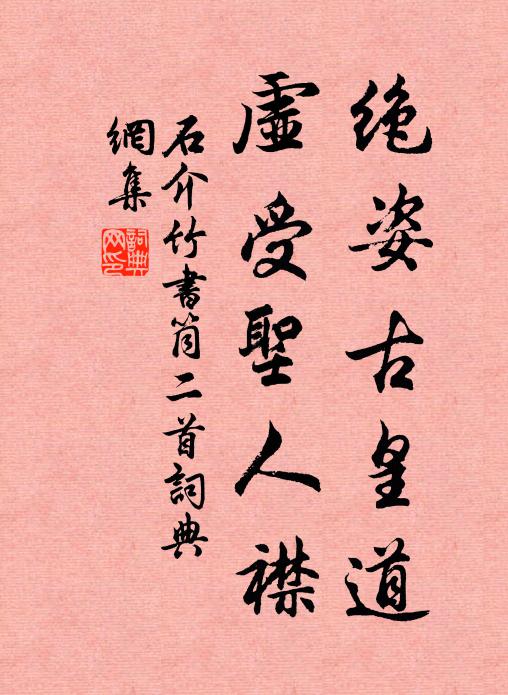 绝姿古皇道
虚受聖人襟
石介竹書筒二首詞典
網集
詞典
网印